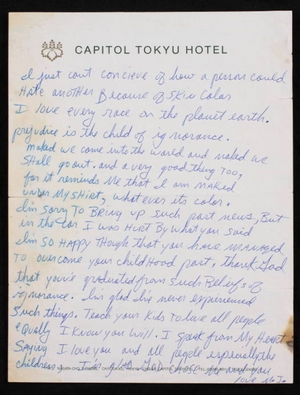 CAPITOL TOKYU HOTEL
I just cant concieve of how a person could
Hate another Because of Skin Color
I love every race on the planet earth.
prejudice is the child of ignorance.
Naked we come into the world and naked we
shall go out. and a very good thing too,
for it reminds me that I am naked
under my shirt, whatever its color.
I'm sorry To Bring up such past news, But
in the car I was Hurt By what you said
I'm SO HAPPY Though that you have managed
to overcome your childHood past, thank God
that you've graduated from such Beliefs of
ignorance. I'm glad I've never experienced
such things. Teach your kids to love all people
equally I know you will. I speak from My Heart
Saying I love you and all people especially the
children, I'm glad God chose me and you
love